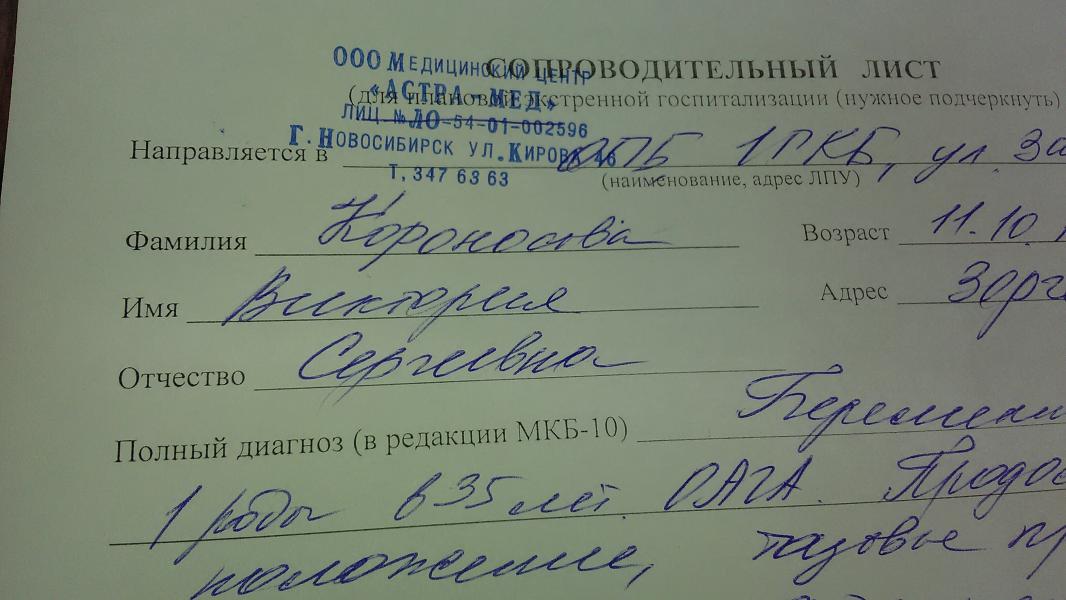 ООО МЕДИЦИНСКИЙ ЦЕНТР
«АСТРА-МЕД»
ЛИЦ № ЛО-54-01-002596
Г. НОВОСИБИРСК УЛ. КИРОВА 46
Т. 347 63 63
СОПРОВОДИТЕЛЬНЫЙ ЛИСТ
(для плановой, экстренной госпитализации (нужное подчеркнуть)
Направляется в ОПБ 1 ГКБ, ул. За
(наименование, адрес ЛПУ)
Фамилия Возраст 11.10.
Имя Виктория Адрес Зорге
Отчество Сергеевна
Полный диагноз (в редакции МКБ-10)
1 роды в 35 лет. ОАГА.
положение, тазовое пр